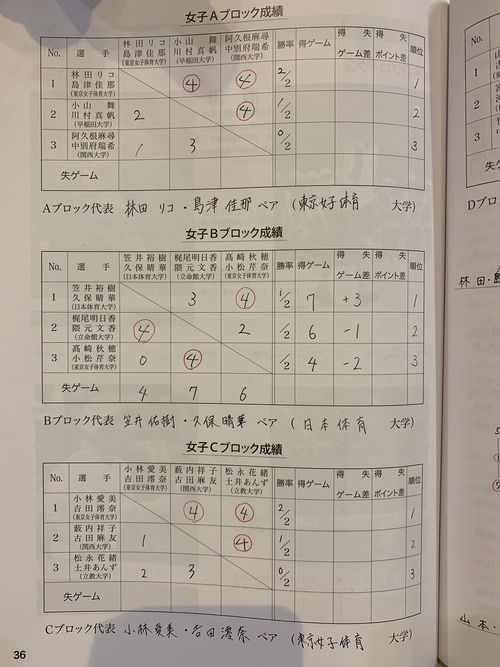 女子Aブロック成績
No. 選手 林田リコ 島津佳那 (東京女子体育大学) 小山舞 川村真帆 (早稲田大学) 阿久根麻尋 中別府瑞希 (関西大学) 勝率 得ゲーム 得失ゲーム差 得失ポイント差 順位
1 林田リコ 島津佳那 (東京女子体育大学) ④ ④ 2/2 1
2 小山舞 川村真帆 (早稲田大学) 2 ④ 1/2 2
3 阿久根麻尋 中別府瑞希 (関西大学) 1 3 0/2 3
失ゲーム
Aブロック代表 林田リコ・島津佳那 ペア (東京女子体育 大学)
女子Bブロック成績
No. 選手 笠井裕樹 久保晴華 (日本体育大学) 梶尾明日香 隈元文香 (立命館大学) 高崎秋穂 小松芹奈 (東京女子体育大学) 勝率 得ゲーム 得失ゲーム差 得失ポイント差 順位
1 笠井裕樹 久保晴華 (日本体育大学) 3 ④ 1/2 7 +3 1
2 梶尾明日香 隈元文香 (立命館大学) ④ 2 1/2 6 -1 2
3 高崎秋穂 小松芹奈 (東京女子体育大学) 0 ④ 1/2 4 -2 3
失ゲーム 4 7 6
Bブロック代表 笠井佑樹・久保晴華 ペア (日本体育 大学)
女子Cブロック成績
No. 選手 小林愛美 吉田澪奈 (東京女子体育大学) 薮内祥子 古田麻友 (関西大学) 松永花緒 土井あんず (立教大学) 勝率 得ゲーム 得失ゲーム差 得失ポイント差 順位
1 小林愛美 吉田澪奈 (東京女子体育大学) ④ ④ 2/2 1
2 薮内祥子 古田麻友 (関西大学) 1 ④ 1/2 2
3 松永花緒 土井あんず (立教大学) 2 3 0/2 3
失ゲーム
Cブロック代表 小林愛美・吉田澪奈 ペア (東京女子体育 大学)
36
No.
1
2
3
失ゲ
Dブロ
林田・
山本・